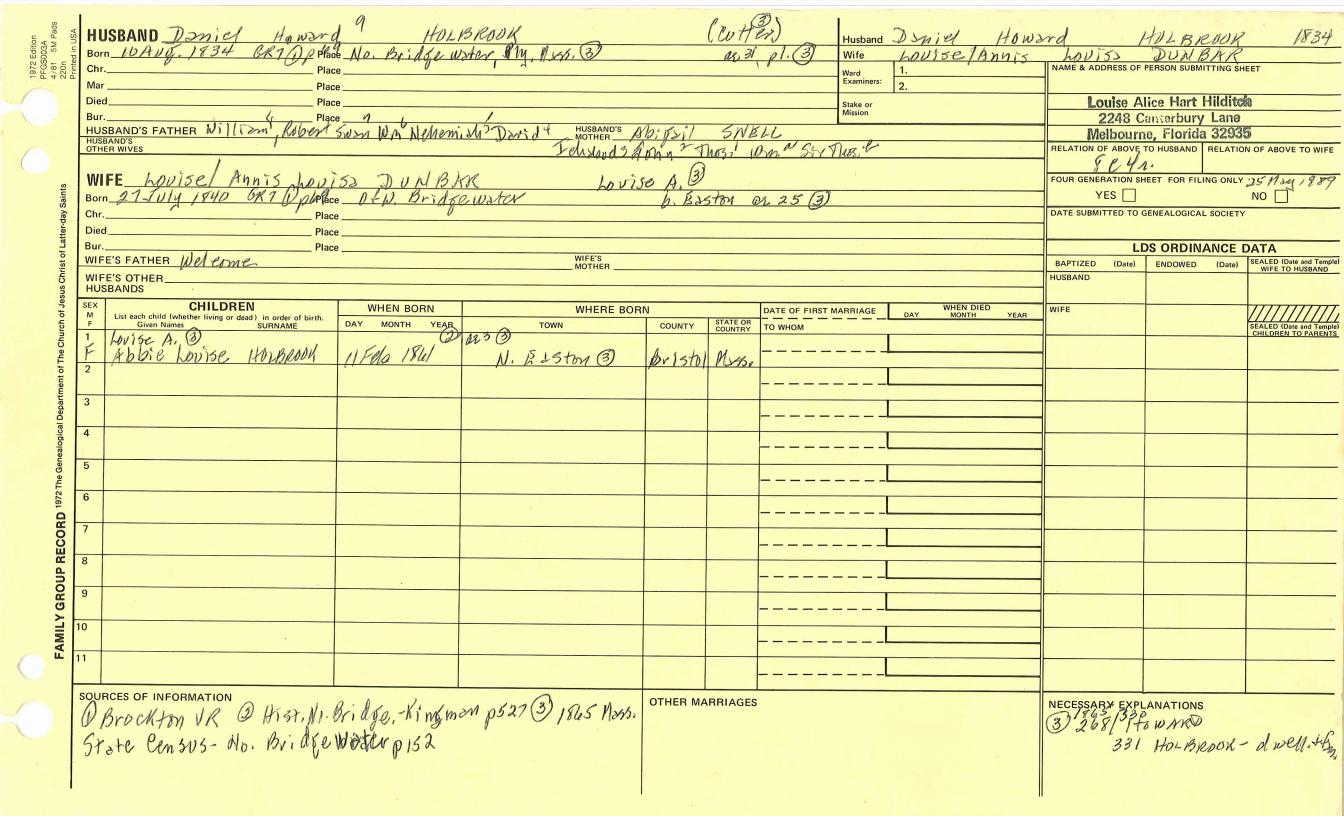 1972 Edition
PFGS003A
4/81 5M Pads
220n
Printed in USA
FAMILY GROUP RECORD 1972 The Genealogical Department of The Church of Jesus Christ of Latter-day Saints
HUSBAND Daniel Howard 9 HOLBROOK (Cutter) ③
Born 10 Aug. 1834 GR7 ① Place No. Bridgewater, Ply, Mass. ③ ae 31, pl. ③
Chr. Place
Mar Place
Died Place
Bur. Place
HUSBAND'S FATHER William, Robert Swan Wm Nehemiah David HUSBAND'S MOTHER Abigail SNELL
HUSBAND'S OTHER WIVES Ichabod John Thos
WIFE Louise/ Annis Louisa DUNBAR Louise A. ③
Born 27 July 1840 GR7 ① Place of W. Bridgewater b. Easton ae 25 ③
Chr. Place
Died Place
Bur. Place
WIFE'S FATHER Welcome WIFE'S MOTHER
WIFE'S OTHER HUSBANDS
Husband Daniel Howard HOLBROOK 1834
Wife Louise/Annis Louisa DUNBAR
Ward Examiners: 1.
2.
Stake or Mission
NAME & ADDRESS OF PERSON SUBMITTING SHEET
Louise Alice Hart Hilditch
2248 Canterbury Lane
Melbourne, Florida 32935
RELATION OF ABOVE TO HUSBAND RELATION OF ABOVE TO WIFE
FOUR GENERATION SHEET FOR FILING ONLY 25 May 1989
YES NO
DATE SUBMITTED TO GENEALOGICAL SOCIETY
LDS ORDINANCE DATA
BAPTIZED (Date) ENDOWED (Date) SEALED (Date and Temple) WIFE TO HUSBAND
HUSBAND
WIFE
SEALED (Date and Temple) CHILDREN TO PARENTS
SEX M F CHILDREN WHEN BORN WHERE BORN DATE OF FIRST MARRIAGE WHEN DIED
List each child (whether living or dead) in order of birth. DAY MONTH YEAR
Given Names SURNAME DAY MONTH YEAR TOWN COUNTY STATE OR COUNTRY TO WHOM
1 Louise A. ③ ② ae 3 ③
F Abbie Louise HOLBROOK 11 Feb 1861 N. Easton ③ Bristol Mass.
2
3
4
5
6
7
8
9
10
11
SOURCES OF INFORMATION
① Brockton VR ② Hist. N. Bridge.-Kingman p527 ③ 1865 Mass.
State Census- No. Bridgewater p152
OTHER MARRIAGES
NECESSARY EXPLANATIONS
③ 268/ HOWARD
331 HOLBROOK- dwell.